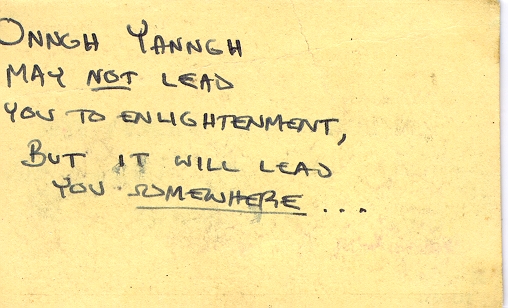 ONNGH YANNGH
MAY NOT LEAD
YOU TO ENLIGHTENMENT,
BUT IT WILL LEAD
YOU SOMEWHERE...